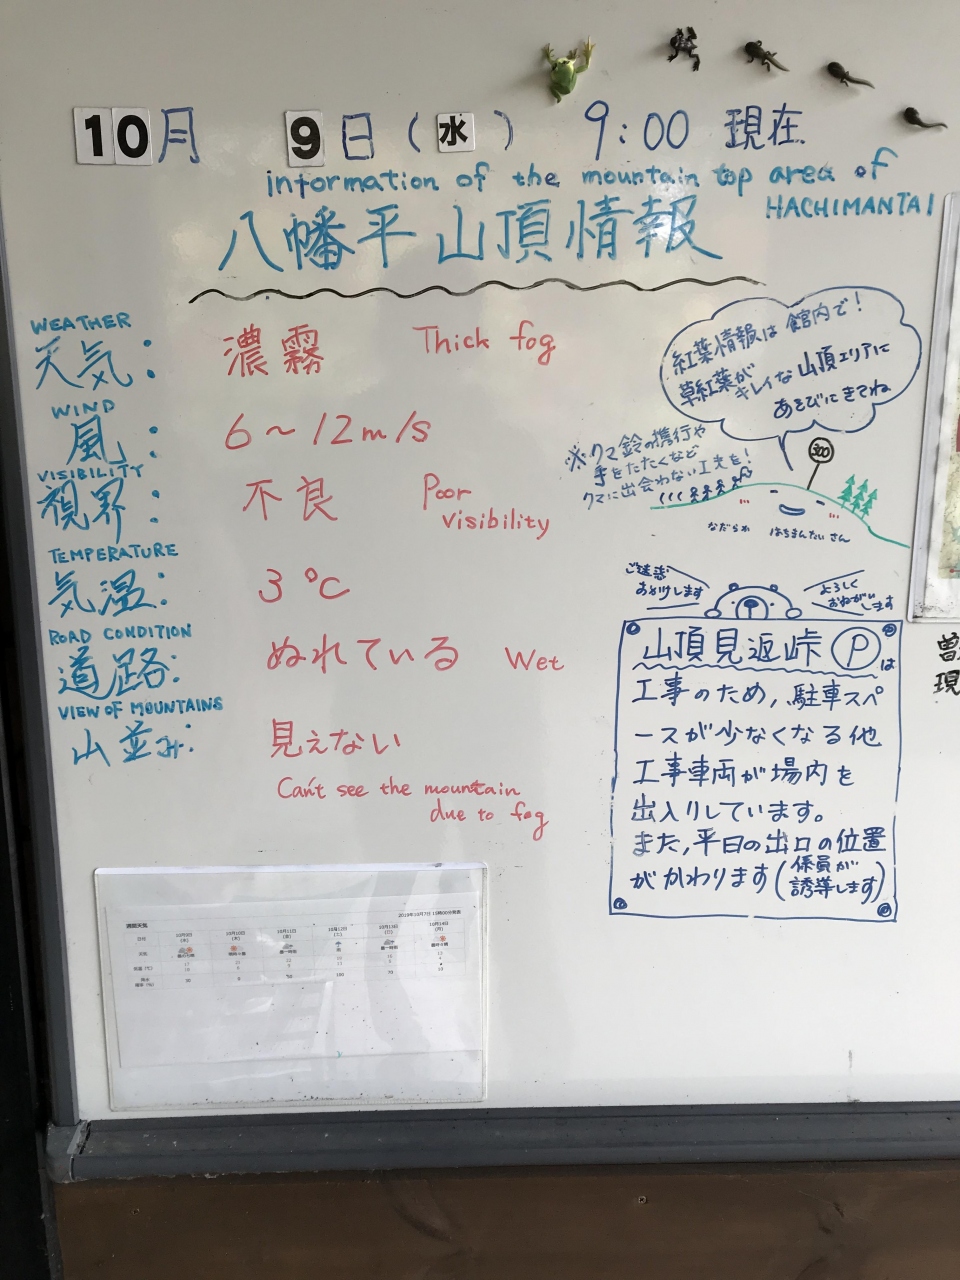 10月 9日(水) 9:00 現在
information of the mountain top area of
HACHIMANTAI
八幡平山頂情報
WEATHER
天気: 濃霧 Thick fog
WIND
風: 6〜12m/s
VISIBILITY
視界: 不良 Poor
visibility
TEMPERATURE
気温: 3℃
ROAD CONDITION
道路: ぬれている Wet
VIEW OF MOUNTAINS
山並み: 見えない
Can't see the mountain
due to fog
紅葉情報は 館内で!
草紅葉が
キレイな 山頂エリアに
あそびにきてね
※クマ鈴の携行や
手をたたくなど
クマに出会わない工夫を!
300
なだらか はちまんたいさん
ご迷惑
おかけします
よろしく
おねがい
します
山頂見返峠 Ⓟは
工事のため,駐車スペ
ースが少なくなる他
工事車両が場内を
出入りしています。
また,平日の出口の位置
がかわります(係員が
誘導します)
曽
現
2019年10月7日 15時00分発表
週間天気
日付 10月9日 10月10日 10月11日 10月12日 10月13日 10月14日
(水) (木) (金) (土) (日) (月)